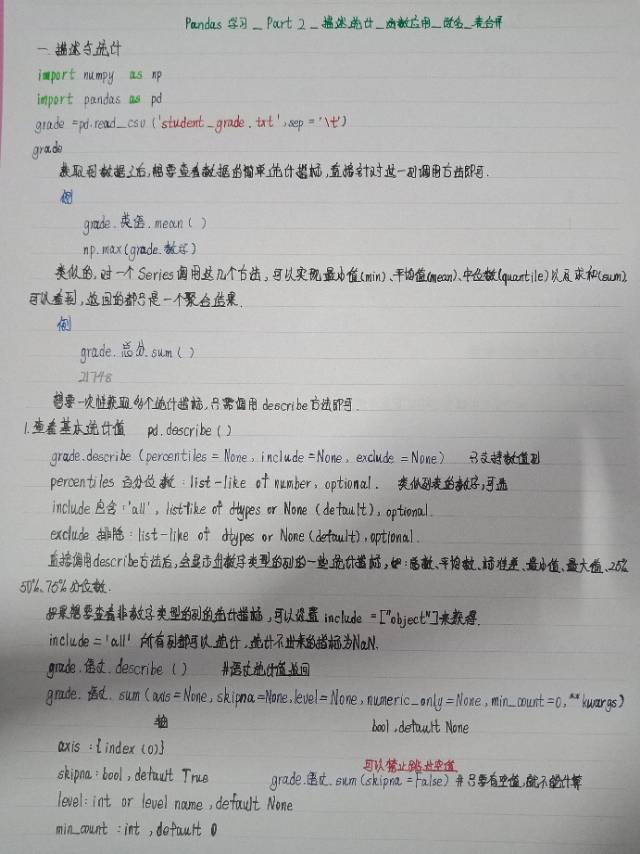 Pandas 学习_Part 2_描述统计_函数应用_改名_表合并
一.描述与统计
import numpy as np
import pandas as pd
grade =pd.read_csv('student_grade.txt',sep='\t')
grade
获取到数据之后,想要查看数据的简单统计指标,直接针对这一列调用方法即可.
例
grade.英语.mean()
np.max(grade.数学)
类似的,对一个Series调用这几个方法,可以实现最小值(min)、平均值(mean)、中位数(quantile)以及求和(sum).
可以看到,返回的都只是一个聚合结果.
例
grade.总分.sum()
21748
想要一次性获取多个统计指标,只需调用describe方法即可.
1.查看基本统计值 pd.describe()
grade.describe(percentiles=None, include=None, exclude=None) 只支持数值列
percentiles 百分位数:list-like of number, optional. 类似列表的数字,可选
include 包含:'all', listlike of dtypes or None (default), optional.
exclude 排除:list-like of dtypes or None (default), optional.
直接调用describe方法后,会显示出数字类型的列的一些统计指标,如:总数、平均数、标准差、最小值、最大值、25%
50%、75%分位数.
如果想要查看非数字类型的列的统计指标,可以设置include=["object"]来获得.
include='all' 所有列都可以统计,统计不出来的指标为NaN.
grade.语文.describe() #语文统计值返回
grade.语文.sum(axis=None, skipna=None, level=None, numeric_only=None, min_count=0, **kwargs)
轴 bool, default None
axis:{index(0)}
可以禁止跳过空值
skipna:bool, default True grade.语文.sum(skipna=False) #只要有空值,就不能计算
level:int or level name, default None
min_count:int, default 0